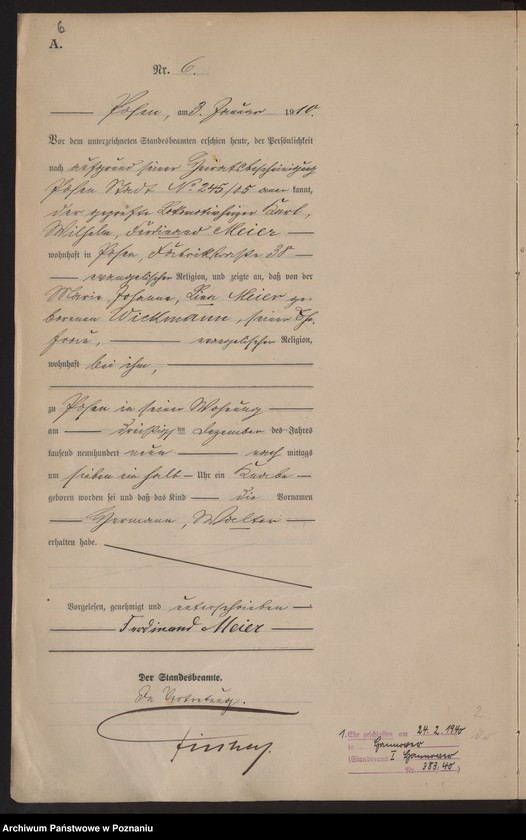 6
A.
Nr. 6.
Posen, am 3. Januar 1910.
Vor dem unterzeichneten Standesbeamten erschien heute, der Persönlichkeit
nach aufgrund seiner Heiratsbescheinigung
Posen Stadt No 245/05 kannt,
der geprüfte Lokomotivheizer Karl,
Wilhelm, Ferdinand Meier
wohnhaft in Posen, Fabrikstraße 38
evangelischer Religion, und zeigte an, daß von der
Marie, Johanne, Meier ge-
borenen Wickmann, seiner Ehe-
frau, evangelischer Religion,
wohnhaft bei ihm,
zu Posen in seiner Wohnung
am dreißigsten Dezember des Jahres
tausend neunhundert neun nach mittags
um sieben ein halb Uhr ein Knabe
geboren worden sei und daß das Kind die Vornamen
Hermann, Walter
erhalten habe.
Vorgelesen, genehmigt und unterschrieben
Ferdinand Meier
Der Standesbeamte.
In Vertretung.
1. Ehe geschlossen am 24. 2. 1940
in Hannover
(Standesamt I Hannover
Nr. 383.40)
Archiwum Państwowe w Poznaniu
szukajwarchiwach.pl